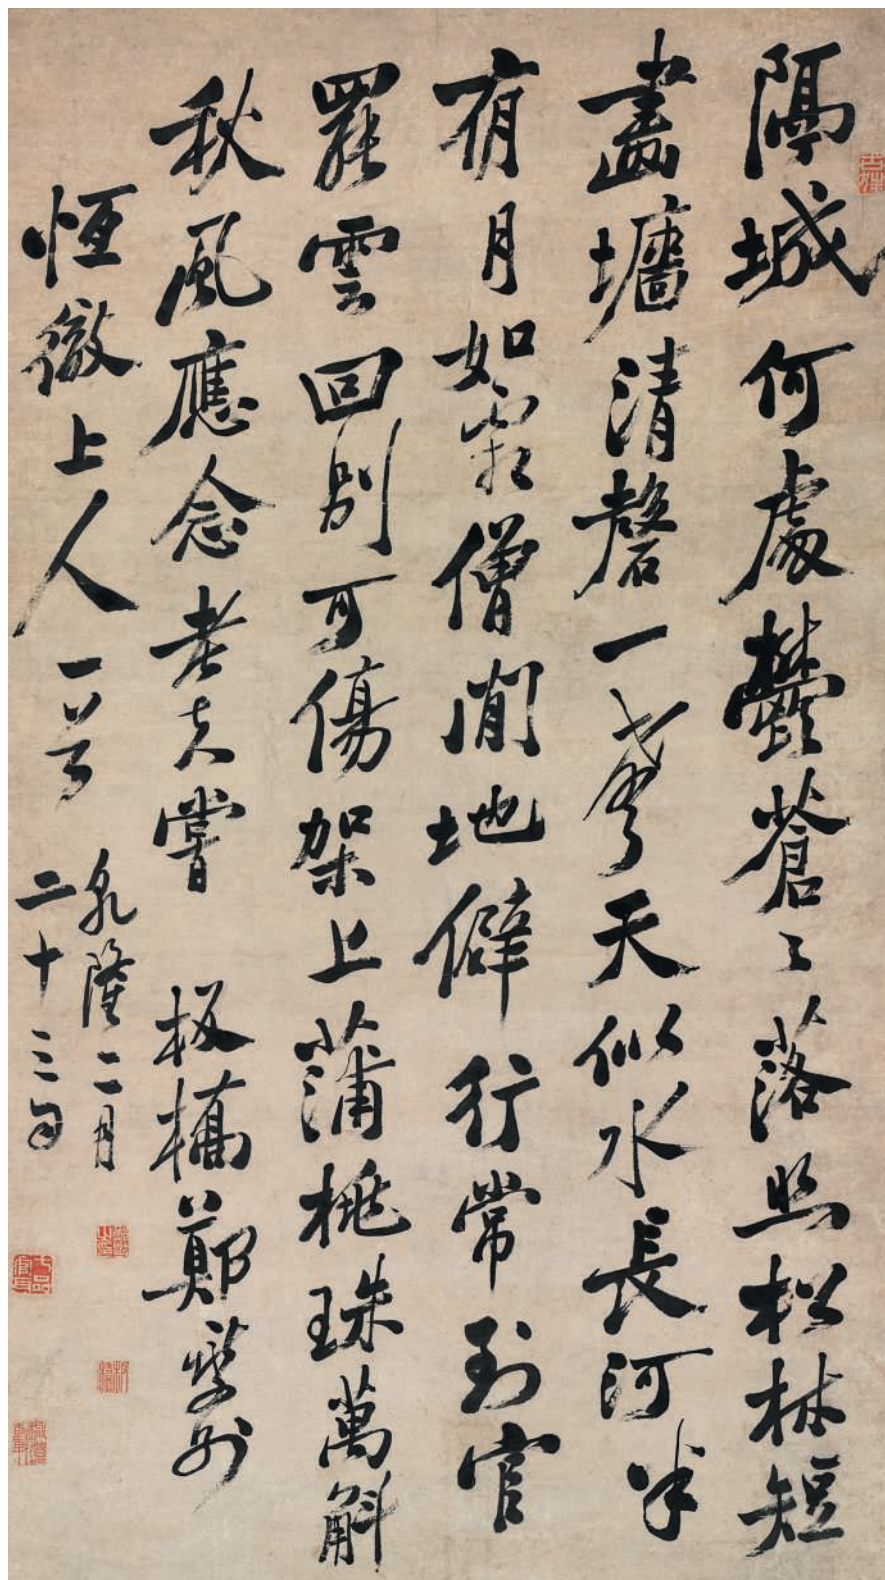 隔城何處鬱蒼々落照松林短
畫墻清磬一聲天似水長河半
夜月如霜僧閒地僻行常到官
罷雲回別可傷架上蒲桃珠萬斛
秋風應念老夫嘗 板橋鄭燮別
恆徹上人一
乾隆二月
二十三日